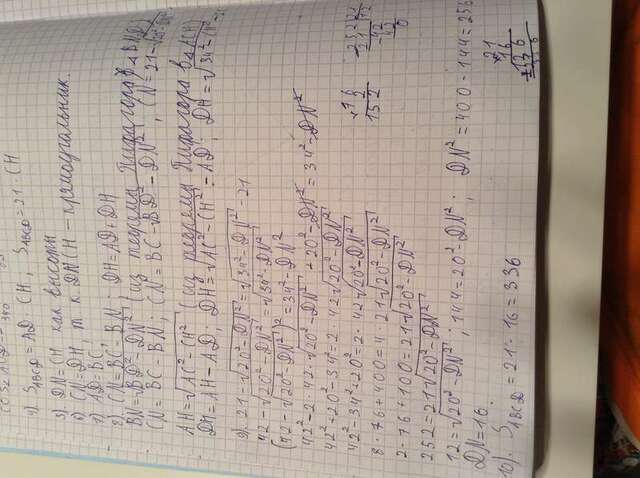 4) S_ABCD = AD · CH, S_ABCD = 21 · CH
5) DN = CH как высоты
6) CN ∥ DH, т.к. DNCH – прямоугольник.
7) AD = BC
8) CN = BC - BN; DH = AD + DH
BN = √BD² - DN² (из теоремы Пифагора в △BND)
CN = BC - BN; CN = BC - √BD² - DN²; CN = 21 - √20² - DN²
AH = √AC² - CH² (из теоремы Пифагора в △ACH)
DH = AH - AD; DH = √AC² - CH² - AD; DH = √34² - DN² - 21
9) 21 - √20² - DN² = √34² - DN² - 21
42 - √20² - DN² = √34² - DN²
(42 - √20² - DN²)² = 34² - DN²
42² - 2 · 42 · √20² - DN² + 20² - DN² = 34² - DN²
42² + 20² - 34² = 2 · 42 √20² - DN²
42² - 34² + 20² = 2 · 42 √20² - DN²
8 · 76 + 400 = 4 · 21 √20² - DN²
2 · 76 + 100 = 21 √20² - DN²
252 = 21 √20² - DN²
12 = √20² - DN²; 144 = 20² - DN²; DN² = 400 - 144 = 256
DN = 16
10) S_ABCD = 21 · 16 = 336